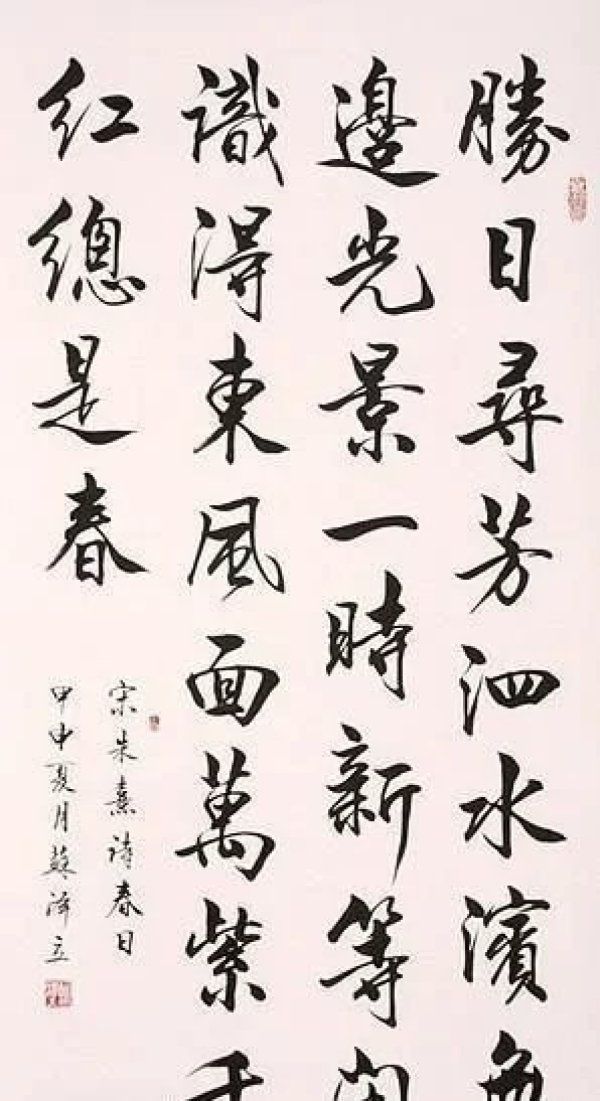 勝日尋芳泗水濱無
邊光景一時新等
識得東風面萬紫千
紅總是春
宋朱熹詩春日
甲申夏月蘇澤立